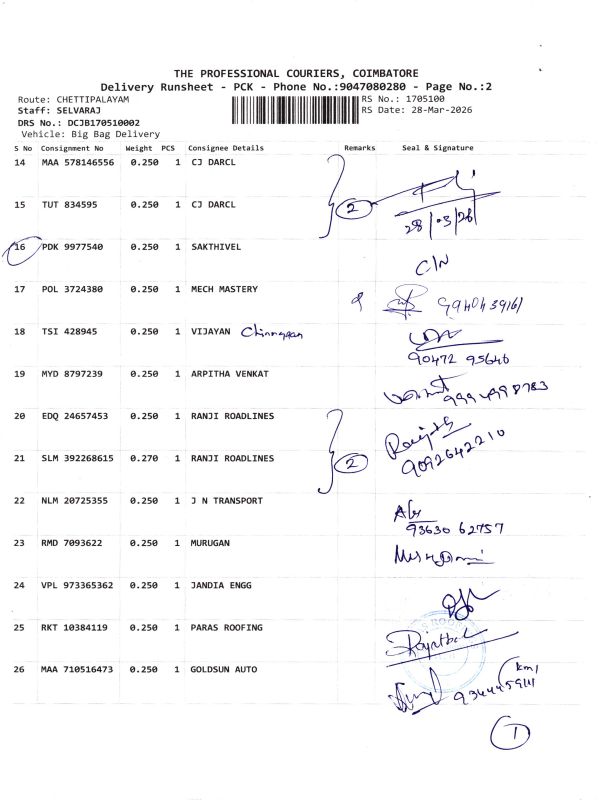 THE PROFESSIONAL COURIERS, COIMBATORE
Delivery Runsheet - PCK - Phone No.:9047080280 - Page No.:2
Route: CHETTIPALAYAM RS No.: 1705100
Staff: SELVARAJ RS Date: 28-Mar-2026
DRS No.: DCJB170510002
Vehicle: Big Bag Delivery
S No Consignment No Weight PCS Consignee Details Remarks Seal & Signature
14 MAA 578146556 0.250 1 CJ DARCL
2
28/03/26
15 TUT 834595 0.250 1 CJ DARCL
16 PDK 9977540 0.250 1 SAKTHIVEL
C/N
17 POL 3724380 0.250 1 MECH MASTERY
18 TSI 428945 0.250 1 VIJAYAN
90472 95646
19 MYD 8797239 0.250 1 ARPITHA VENKAT
20 EDQ 24657453 0.250 1 RANJI ROADLINES
21 SLM 392268615 0.270 1 RANJI ROADLINES 2
9092642210
22 NLM 20725355 0.250 1 J N TRANSPORT
93630 62757
23 RMD 7093622 0.250 1 MURUGAN
24 VPL 973365362 0.250 1 JANDIA ENGG
25 RKT 10384119 0.250 1 PARAS ROOFING
26 MAA 710516473 0.250 1 GOLDSUN AUTO
1